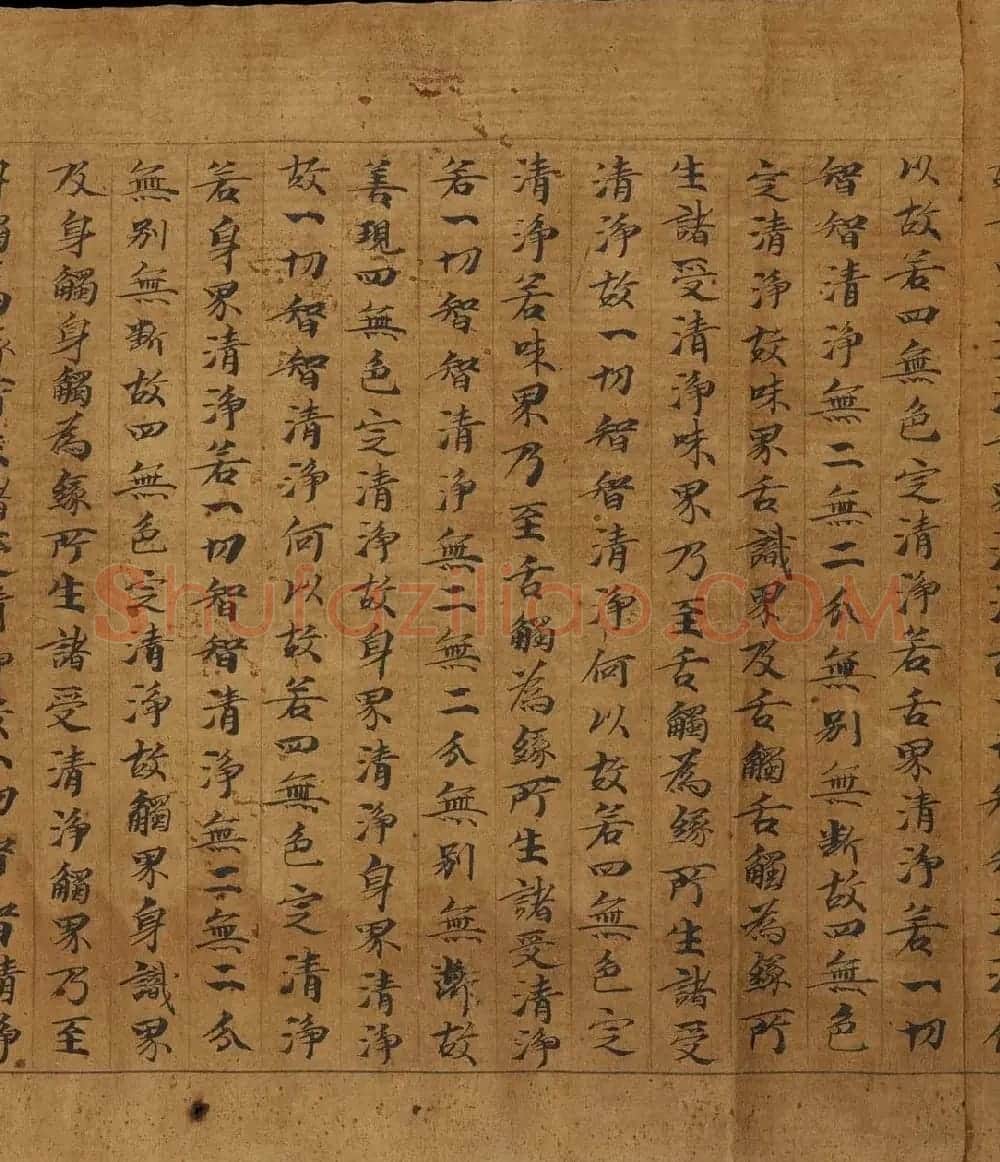 以故若四無色定清淨若舌界清淨若一切
智智清淨無二無二分無別無斷故四無色
定清淨故味界舌識界及舌觸舌觸為緣所
生諸受清淨味界乃至舌觸為緣所生諸受
清淨故一切智智清淨何以故若四無色定
清淨若味界乃至舌觸為緣所生諸受清淨
若一切智智清淨無二無二分無別無斷故
善現四無色定清淨故身界清淨身界清淨
故一切智智清淨何以故若四無色定清淨
若身界清淨若一切智智清淨無二無二分
無別無斷故四無色定清淨故觸界身識界
及身觸身觸為緣所生諸受清淨觸界乃至
Shufaziliao.COM